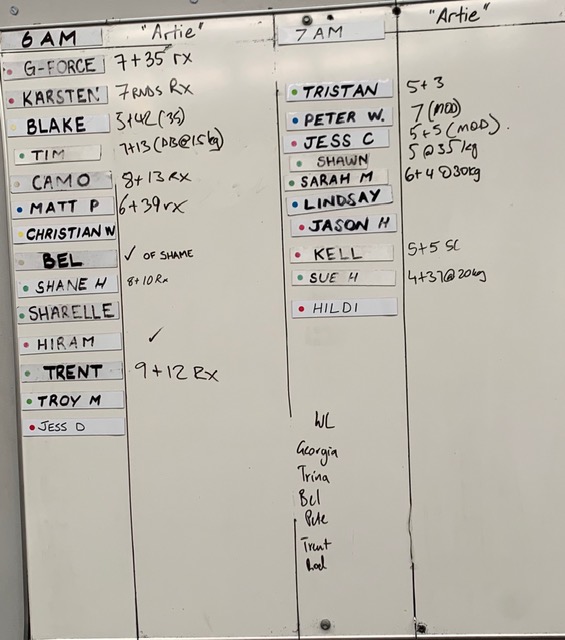 6 AM "Artie"
G-FORCE 7+35 rx
KARSTEN 7 RNDS Rx
BLAKE 5+42 (35)
TIM 7+13 (DB@15kg)
CAMO 8+13 RX
MATT P 6+39 rx
CHRISTIAN W
BEL ✓ OF SHAME
SHANE H 8+10 Rx
SHARELLE
HIRAM ✓
TRENT 9+12 RX
TROY M
JESS D
7 AM "Artie"
TRISTAN 5+3
PETER W. 7 (MOD)
JESS C 5+5 (MOD).
SHAWN 5 @ 35kg
SARAH M 6+4 @30kg
LINDSAY
JASON H
KELL 5+5 SC
SUE H 4+37@20kg
HILDI
WL
Georgia
Trina
Bel
Pete
Trent